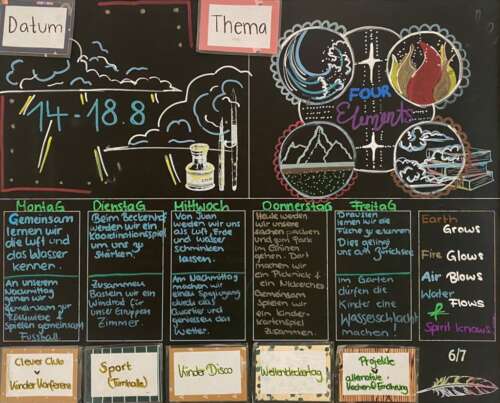 Datum
Thema
14-18.8
FOUR
Elements
Montag
Gemeinsam
lernen wir
die Luft und
das Wasser
kennen.
An unserem
Nachmittag
gehen wir
gemeinsam zur
spielen gemeinsam
Fussball.
Dienstag
Beim Beckenhof
werden wir ein
Koordinationsspiel
um uns zu
stärken.
Zusammen
Basteln wir ein
Windrad für
unser Gruppen
Zimmer.
Mittwoch
Von Juan
werden wir uns
als Luft, Erde
und Wasser
schminken
lassen.
Am Nachmittag
machen wir
einen Spaziergang
durch das
Quartier und
geniessen das
Wetter.
Donnerstag
Heute werden
wir unsere
sachen packen
und zum Park
im Grünen
gehen. Dort
machen wir
ein Picknick &
ein
Gemeinsam
spielen wir
ein Kinder-
kartenspiel
zusammen.
Freitag
Draussen
lernen wir die
Fische zu erkennen
Dies gelingt
uns am
Im Garten
dürfen die
Kinder eine
Wasserschlacht
machen!
Earth
Grows
Fire Glows
Air Blows
Water
Flows
&
Spirit knows!
Clever Club
Kinder Konferenz
Sport
(Turnhalle)
Kinder Disco
Weltentdeckertag
Projekte
alternative
Wochen &
6/7